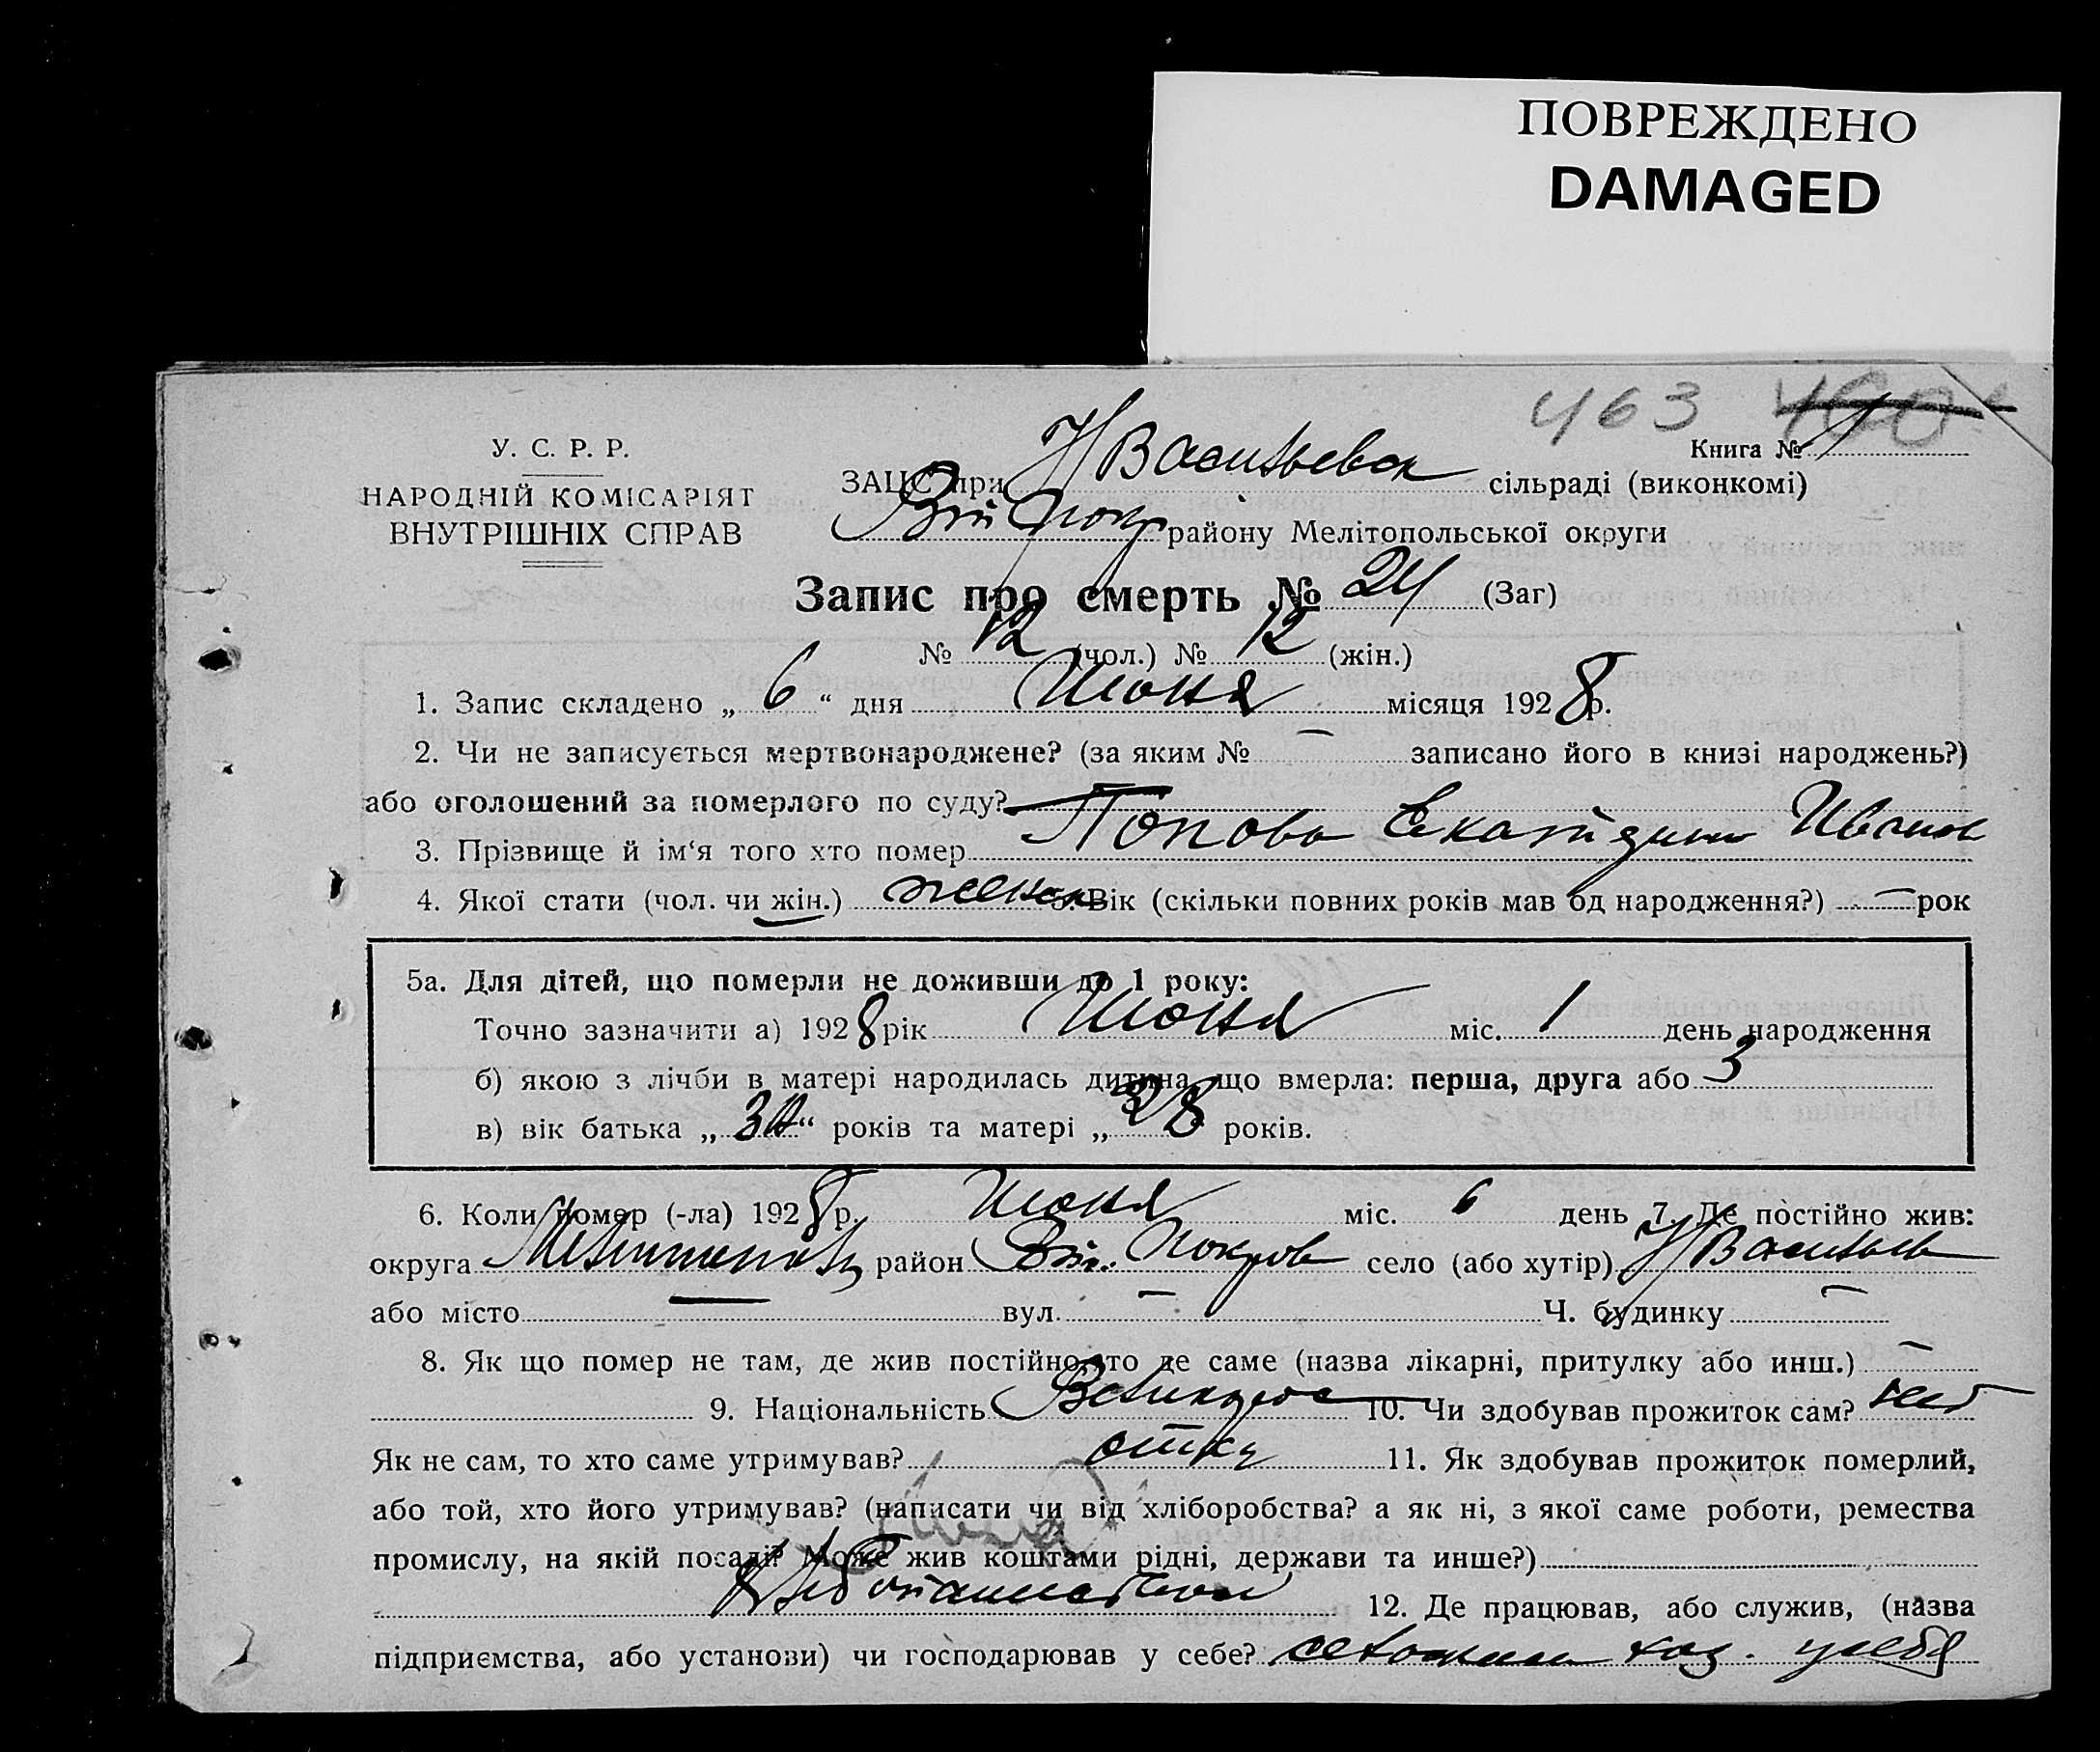 ПОВРЕЖДЕНО
DAMAGED
463
У. С. Р. Р.
НАРОДНІЙ КОМІСАРІЯТ
ВНУТРІШНІХ СПРАВ
Книга № 1
ЗАЦС при Н Васильевск сільраді (виконкомі)
району Мелітопольської округи
Запис про смерть № 24 (Заг)
№ 12 (чол.) № 12 (жін.)
1. Запис складено „ 6 “ дня Июня місяця 1928 р.
2. Чи не записується мертвонароджене? (за яким № — записано його в книзі народжень?)
або оголошений за померлого по суду? —
3. Прізвище й ім‘я того хто помер Попова Екатерина Иванов
4. Якої стати (чол. чи жін.) женск 5. Вік (скільки повних років мав од народження?) — рок
5а. Для дітей, що померли не доживши до 1 року:
Точно зазначити а) 1928 рік Июня міс. 1 день народження
б) якою з лічби в матері народилась дитина що вмерла: перша, друга або 3
в) вік батька „ “ років та матері „ 28 років.
6. Коли помер (-ла) 1928 р. Июня міс. 6 день 7. Де постійно жив:
округа район Покров село (або хутір) Н Васильев
або місто — вул. — Ч. будинку —
8. Як що помер не там, де жив постійно, то де саме (назва лікарні, притулку або инш.) —
9. Національність Великорос 10. Чи здобував прожиток сам? нет
Як не сам, то хто саме утримував? отец 11. Як здобував прожиток померлий,
або той, хто його утримував? (написати чи від хліборобства? а як ні, з якої саме роботи, ремества
промислу, на якій посаді? може жив коштами рідні, держави та инше?)
12. Де працював, або служив, (назва
підприємства, або установи) чи господарював у себе? хоз. у себя